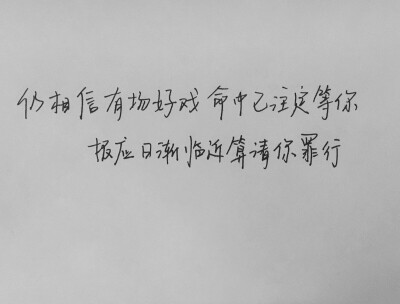 仍相信有场好戏 命中已注定等你
报应日渐临近算请你罪行